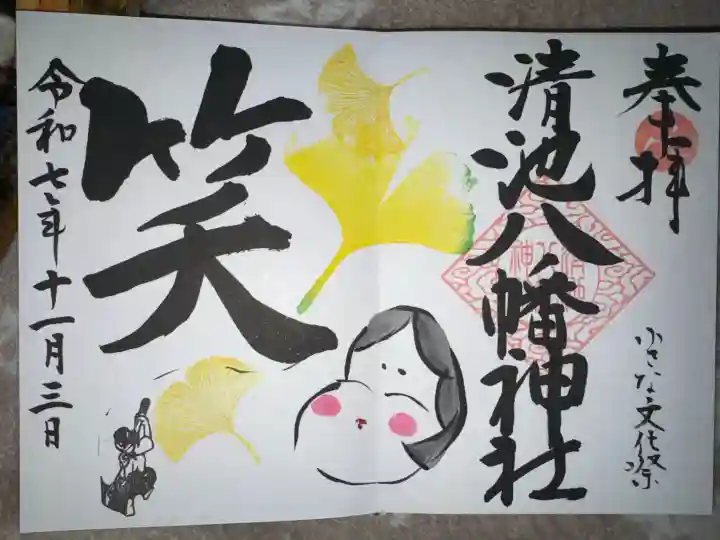 奉拝
小さな文化祭
清池八幡神社
笑
令和七年十一月三日